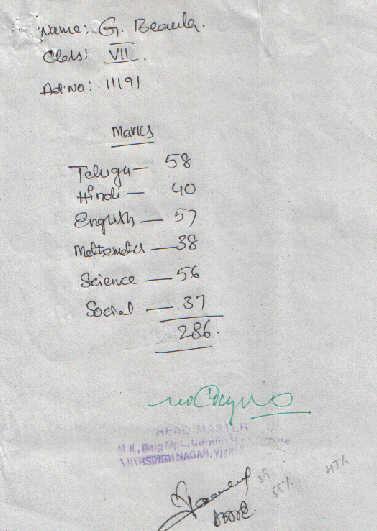 Name: G. Beaula.
Class: VII
Ad.No: 11191
Marks
Telugu — 58
Hindi — 40
English — 57
Mathematics — 38
Science — 56
Social — 37
286.
HEAD MASTER
NAGAR,